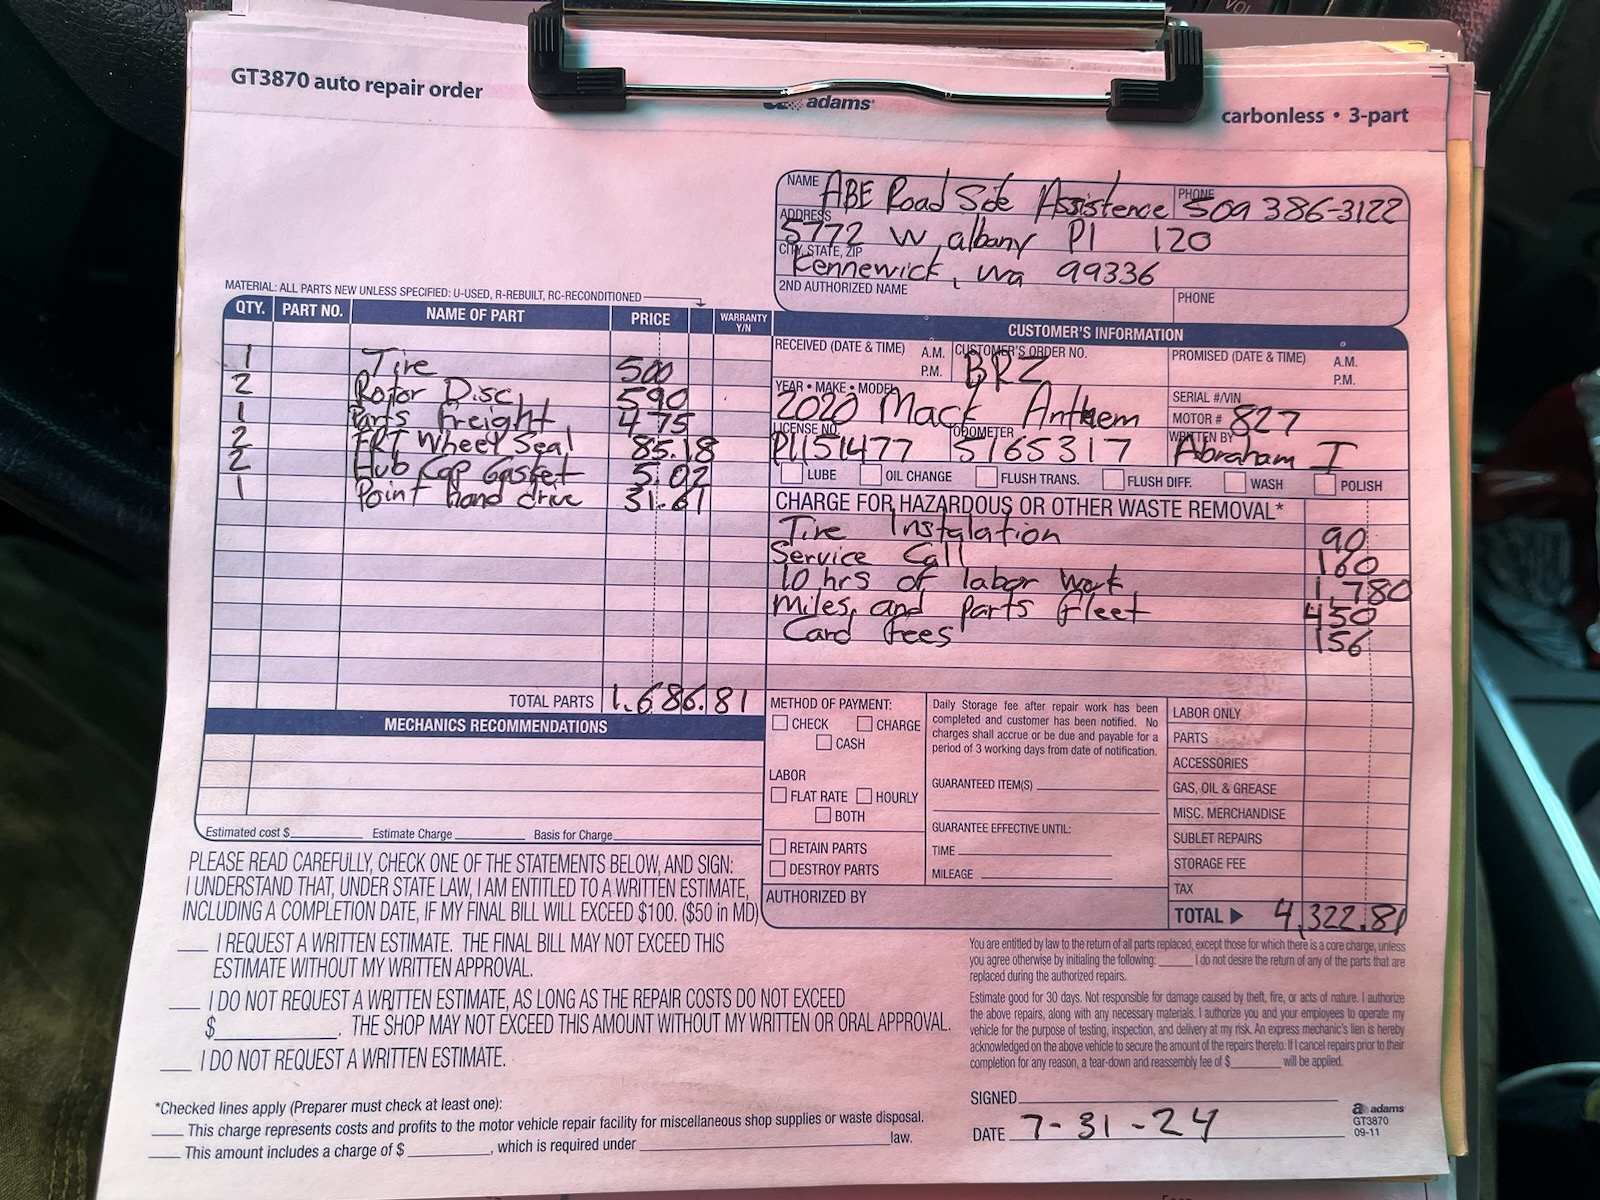 GT3870 auto repair order
adams
carbonless • 3-part
NAME ABE Road Side Assistence PHONE 509 386-3122
ADDRESS 5772 W, albany Pl 120
CITY, STATE, ZIP Kennewick, wa 99336
2ND AUTHORIZED NAME PHONE
MATERIAL: ALL PARTS NEW UNLESS SPECIFIED: U-USED, R-REBUILT, RC-RECONDITIONED
QTY. PART NO. NAME OF PART PRICE WARRANTY Y/N
1 Tire 500
2 Rotor Disc 590
1 Parts Freight 475
2 FRT Wheel Seal 85.18
2 Hub Cap Gasket 5.02
1 Point hand drive 31.61
TOTAL PARTS 1,686.81
CUSTOMER'S INFORMATION
RECEIVED (DATE & TIME) A.M. P.M. CUSTOMER'S ORDER NO. BRZ PROMISED (DATE & TIME) A.M. P.M.
YEAR • MAKE • MODEL 2020 Mack Anthem SERIAL #/VIN
MOTOR # 827
LICENSE NO. P1151477 ODOMETER 5165317 WRITTEN BY Abraham I
LUBE OIL CHANGE FLUSH TRANS. FLUSH DIFF. WASH POLISH
CHARGE FOR HAZARDOUS OR OTHER WASTE REMOVAL*
Tire Instalation 90
Service Call 160
10 hrs of labor work 1,780
miles, and parts fleet 450
Card fees 156
MECHANICS RECOMMENDATIONS
Estimated cost $ Estimate Charge Basis for Charge
METHOD OF PAYMENT:
CHECK CHARGE
CASH
LABOR
FLAT RATE HOURLY
BOTH
RETAIN PARTS
DESTROY PARTS
Daily Storage fee after repair work has been
completed and customer has been notified. No
charges shall accrue or be due and payable for a
period of 3 working days from date of notification.
GUARANTEED ITEM(S)
GUARANTEE EFFECTIVE UNTIL:
TIME
MILEAGE
AUTHORIZED BY
LABOR ONLY
PARTS
ACCESSORIES
GAS, OIL & GREASE
MISC. MERCHANDISE
SUBLET REPAIRS
STORAGE FEE
TAX
TOTAL ▶ 4,322.81
PLEASE READ CAREFULLY, CHECK ONE OF THE STATEMENTS BELOW, AND SIGN:
I UNDERSTAND THAT, UNDER STATE LAW, I AM ENTITLED TO A WRITTEN ESTIMATE,
INCLUDING A COMPLETION DATE, IF MY FINAL BILL WILL EXCEED $100. ($50 in MD)
I REQUEST A WRITTEN ESTIMATE. THE FINAL BILL MAY NOT EXCEED THIS
ESTIMATE WITHOUT MY WRITTEN APPROVAL.
I DO NOT REQUEST A WRITTEN ESTIMATE, AS LONG AS THE REPAIR COSTS DO NOT EXCEED
$ . THE SHOP MAY NOT EXCEED THIS AMOUNT WITHOUT MY WRITTEN OR ORAL APPROVAL.
I DO NOT REQUEST A WRITTEN ESTIMATE.
*Checked lines apply (Preparer must check at least one):
This charge represents costs and profits to the motor vehicle repair facility for miscellaneous shop supplies or waste disposal.
This amount includes a charge of $ , which is required under law.
You are entitled by law to the return of all parts replaced, except those for which there is a core charge, unless
you agree otherwise by initialing the following: I do not desire the return of any of the parts that are
replaced during the authorized repairs.
Estimate good for 30 days. Not responsible for damage caused by theft, fire, or acts of nature. I authorize
the above repairs, along with any necessary materials. I authorize you and your employees to operate my
vehicle for the purpose of testing, inspection, and delivery at my risk. An express mechanic's lien is hereby
acknowledged on the above vehicle to secure the amount of the repairs thereto. If I cancel repairs prior to their
completion for any reason, a tear-down and reassembly fee of $ will be applied.
SIGNED
DATE 7-31-24
adams
GT3870
09-11